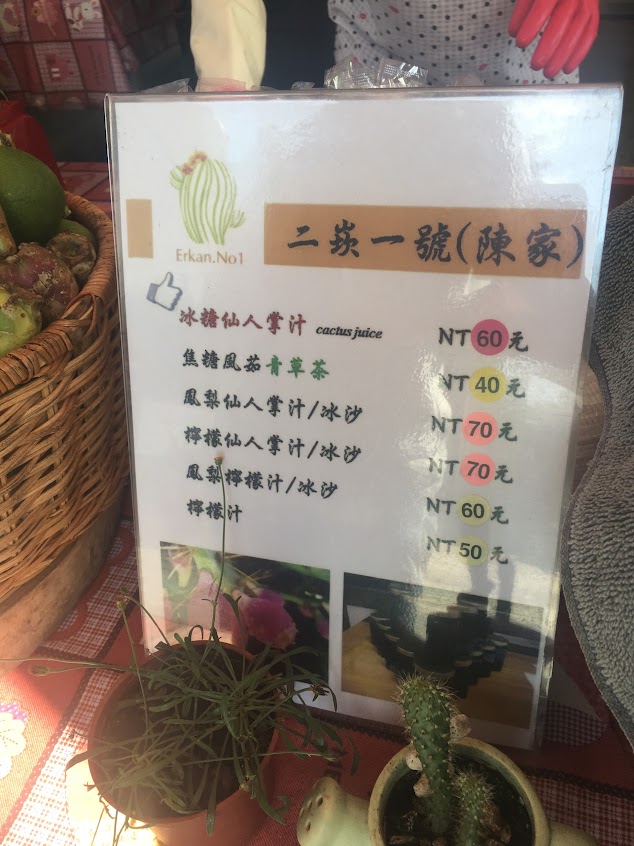 Erkan.No1
二崁一號(陳家)
冰糖仙人掌汁 cactus juice NT 60元
焦糖風茹青草茶 NT 40元
鳳梨仙人掌汁/冰沙 NT 70元
檸檬仙人掌汁/冰沙 NT 70元
鳳梨檸檬汁/冰沙 NT 60元
檸檬汁 NT 50元